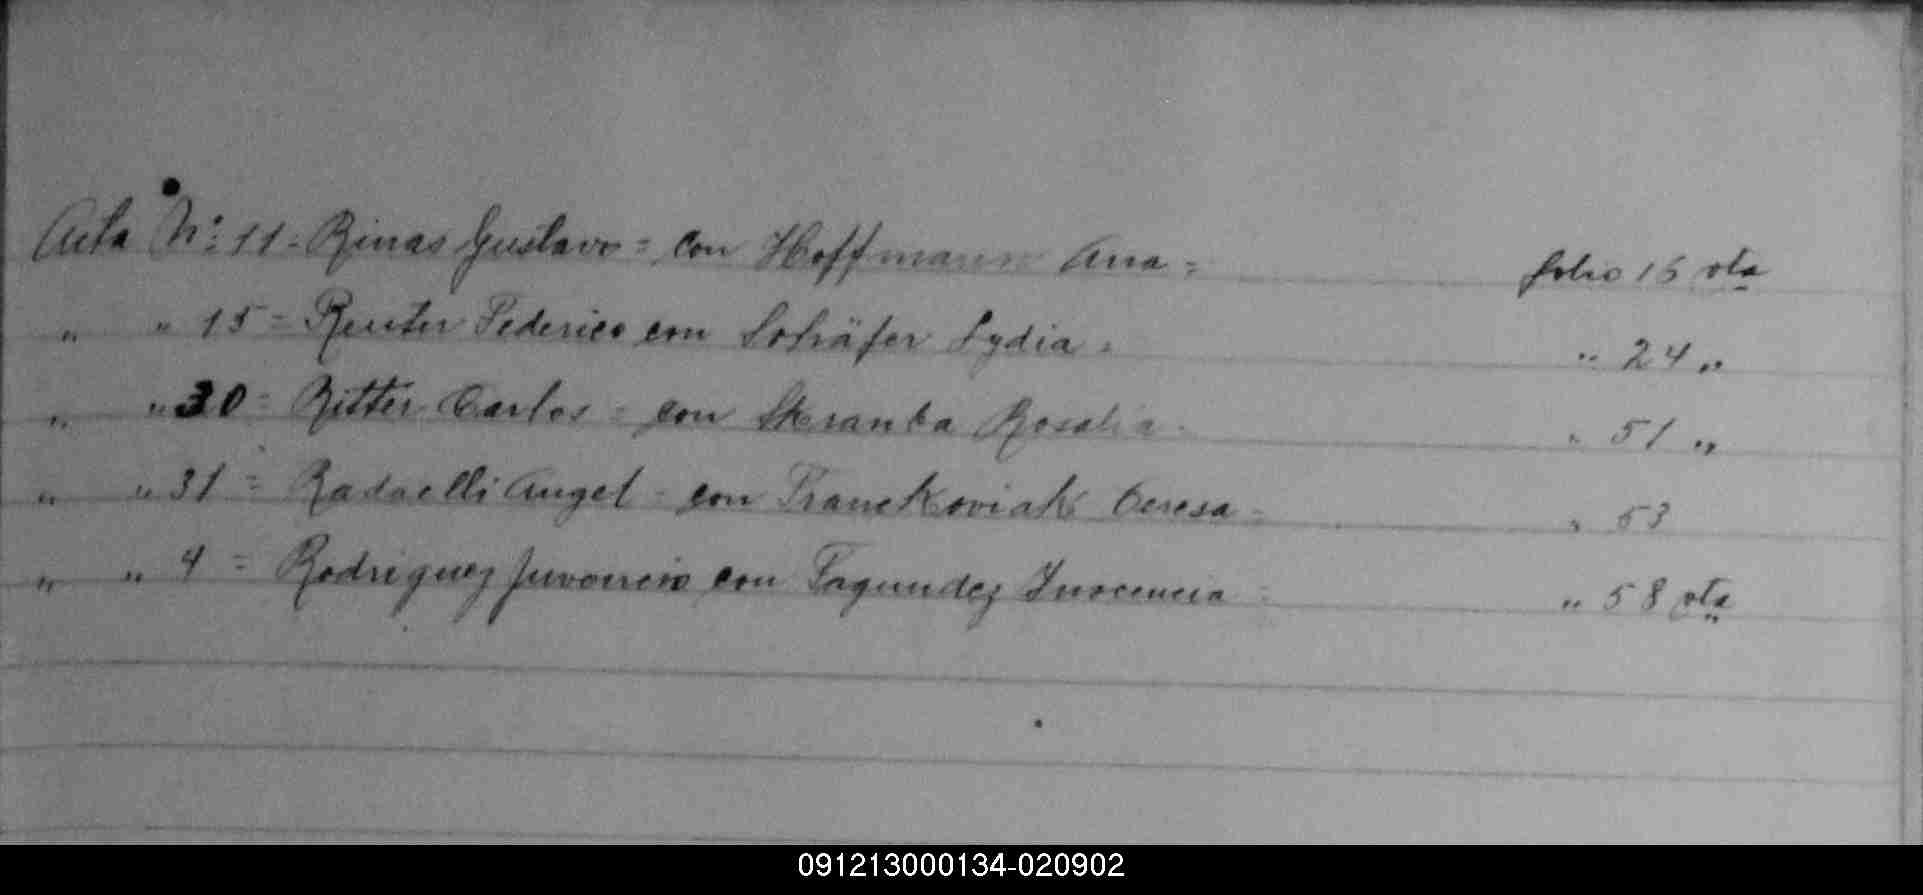 Acta Nº 11 = Rinas Gustavo = con Hoffmann Ana = folio 15 vta
" " 15 = Reuter Federico con Schäfer Lydia = " 24 "
" " 30 = Ritter Carlos = con Rosalia " 51 "
" " 31 = Radaelli Angel = con Franckoviak Teresa = " 53
" " 4 = Rodriguez Juvencio con Fagundez Inocencia = " 58 vta
091213000134-020902